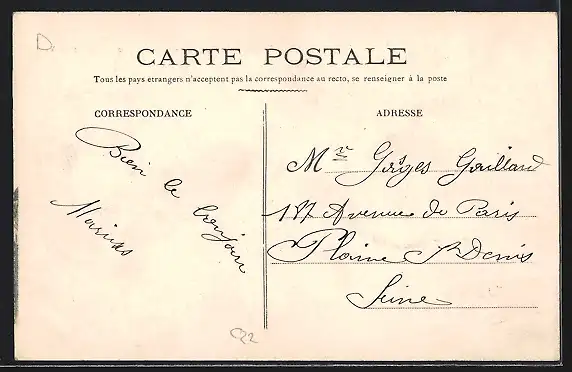 D.
CARTE POSTALE
Tous les pays étrangers n'acceptent pas la correspondance au recto, se renseigner à la poste
CORRESPONDANCE
ADRESSE
Bien le bonjour
Marius
Mr Gaillard
Avenue de Paris
Plaine St Denis
Seine
C22